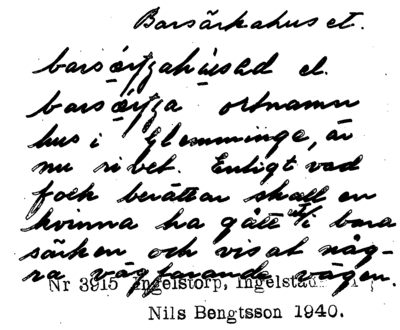 Barsärkahuset.
barsærkahusəd el.
barsærka ortnamn
hus i Glemminge, är
nu rivet. Enligt vad
folk berättar skall en
kvinna ha gått ut i bara
särken och visat någ-
ra vägfarande vägen.
Nr 3915 Ingelstorp, Ingelstads
Nils Bengtsson 1940.